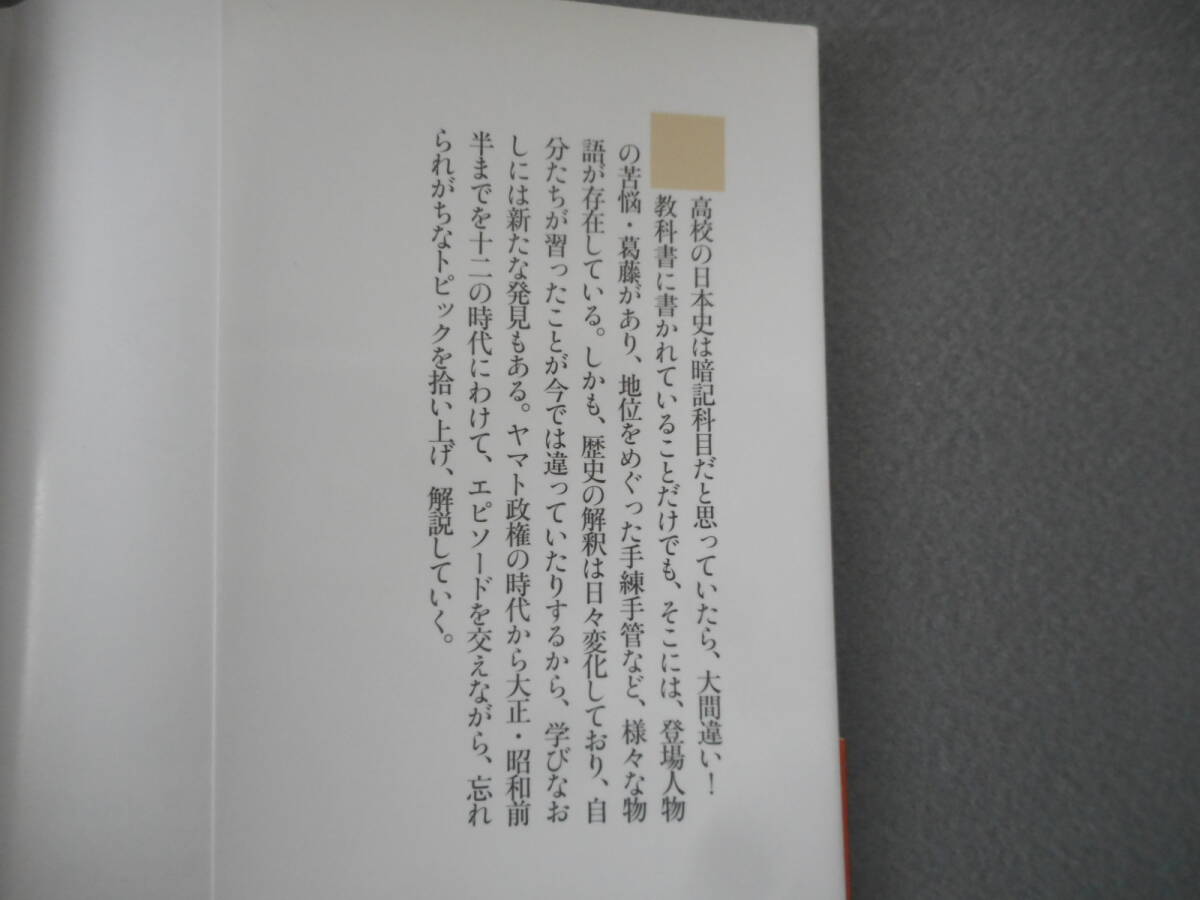 高校の日本史は暗記科目だと思っていたら、大間違い！
教科書に書かれていることだけでも、そこには、登場人物
の苦悩・葛藤があり、地位をめぐった手練手管など、様々な物
語が存在している。しかも、歴史の解釈は日々変化しており、自
分たちが習ったことが今では違っていたりするから、学びなお
しには新たな発見もある。ヤマト政権の時代から大正・昭和前
半までを十二の時代にわけて、エピソードを交えながら、忘れ
られがちなトピックを拾い上げ、解説していく。